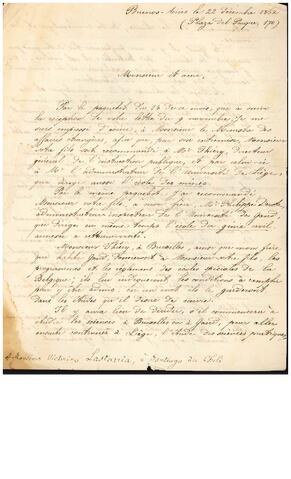 Buenos-Aires le 22 décembre 1862
(Plaza del Parque, 178)
Monsieur et ami,
Par le paquebot du 14 de ce mois, que a suivi
la réception de votre lettre du 9 novembre, je me
suis empressé d'écrire, à Monsieur le Ministre des
affaires étrangères, afin que par son entremise, Monsieur
votre fils soit recommandé à Mr Thiery, directeur
général de l'instruction publique, et par celui-ci
à Mr l'administrateur de l'Université de Liège,
que dirige aussi l'école des mines.
Par le même paquebot j'ai recommandé
Monsieur votre fils, à mon frère, Mr Philippe
administrateur inspecteur de l'Université de Gand,
que dirige en même temps l'école du génie civil
annexée à cette université.
Monsieur Thiery, à Bruxelles, ainsi que mon frère
qui habite Gand, donneront à Monsieur votre fils, les
programmes et les règlements des écoles spéciales de la
Belgique; ils lui indiqueront les conditions à remplir
pour y être admis, en un mot ils le guideront
dans les études qu'il désire de suivre.
Il y aura lieu de décider, s'il commencera à
étudier les sciences à Bruxelles ou à Gand, pour aller
ensuite continuer à Liège, l'étude des sciences pratiques,
A Monsieur Victorino Lastarria, à Santiago du Chili